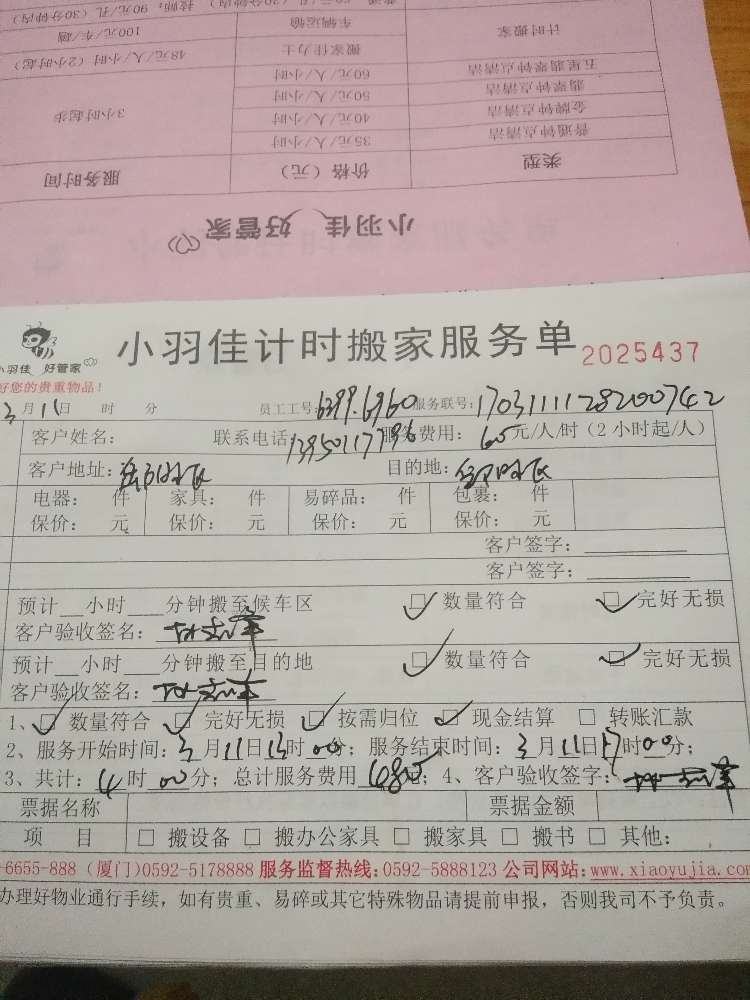 普通 50元/孔 (30分钟内) 技师：90元/孔 (30分钟内)
计时搬家 车辆运输 100元/车/趟
搬家佳力士 48元/人/小时 (2小时起)
五星翡翠钟点清洁 60元/人/小时
翡翠钟点清洁 50元/人/小时 3小时起步
金牌钟点清洁 40元/人/小时
普通钟点清洁 35元/人/小时
类型 价格（元） 服务时间
小羽佳 好管家
小羽佳 好管家
小羽佳计时搬家服务单 2025437
好您的贵重物品！
3月11日 时 分 员工工号：6399.6960 服务联号：17031111282000742
客户姓名： 联系电话：13950117796 服务费用：60元/人/时（2小时起/人）
客户地址： 目的地：
电器： 件 家具： 件 易碎品： 件 包裹： 件
保价： 元 保价： 元 保价： 元 保价： 元
客户签字：
客户签字：
预计__小时___分钟搬至候车区 ☑ 数量符合 ☑ 完好无损
客户验收签名：
预计__小时___分钟搬至目的地 ☑ 数量符合 ☑ 完好无损
客户验收签名：
1、☑ 数量符合 ☑ 完好无损 ☑ 按需归位 ☑ 现金结算 □ 转账汇款
2、服务开始时间：3月11日13时00分；服务结束时间：3月11日17时00分；
3、共计：4时00分；总计服务费用680元；4、客户验收签字：
票据名称 票据金额
项 目 □ 搬设备 □ 搬办公家具 □ 搬家具 □ 搬书 □ 其他：
-6655-888 (厦门)0592-5178888 服务监督热线：0592-5888123 公司网站：www.xiaoyujia.com
办理好物业通行手续，如有贵重、易碎或其它特殊物品请提前申报，否则我司不予负责。